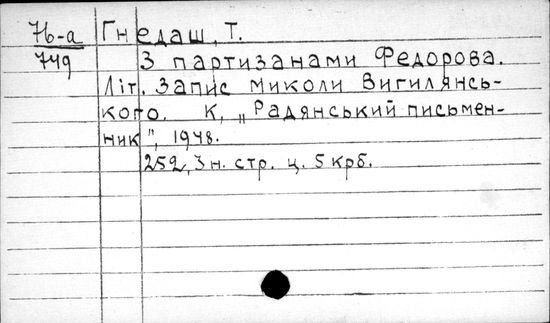 76-а Гнедаш, Т.
749 З партизанами Федорова.
Літ. запис Миколи Вигилянсь-
кого. К, „Радянський письмен-
ник", 1948.
252, 3 н. стр. ц. 5 крб.